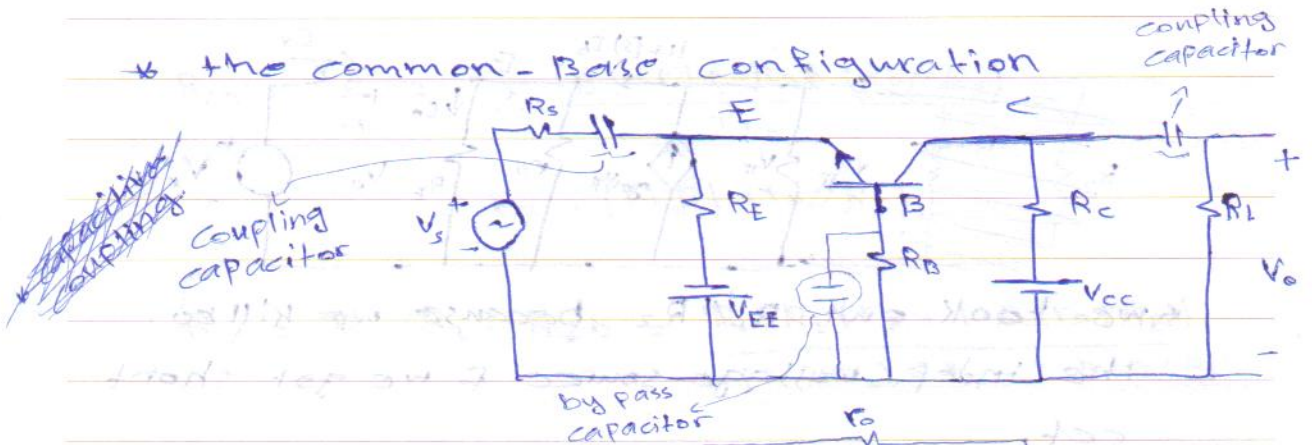 * the common-Base configuration
coupling
capacitor
Rs
E
C
capacitive
coupling
coupling
capacitor
Vs
+
-
RE
B
RC
RL
+
RB
VEE
VCC
Vo
-
by pass
capacitor
ro